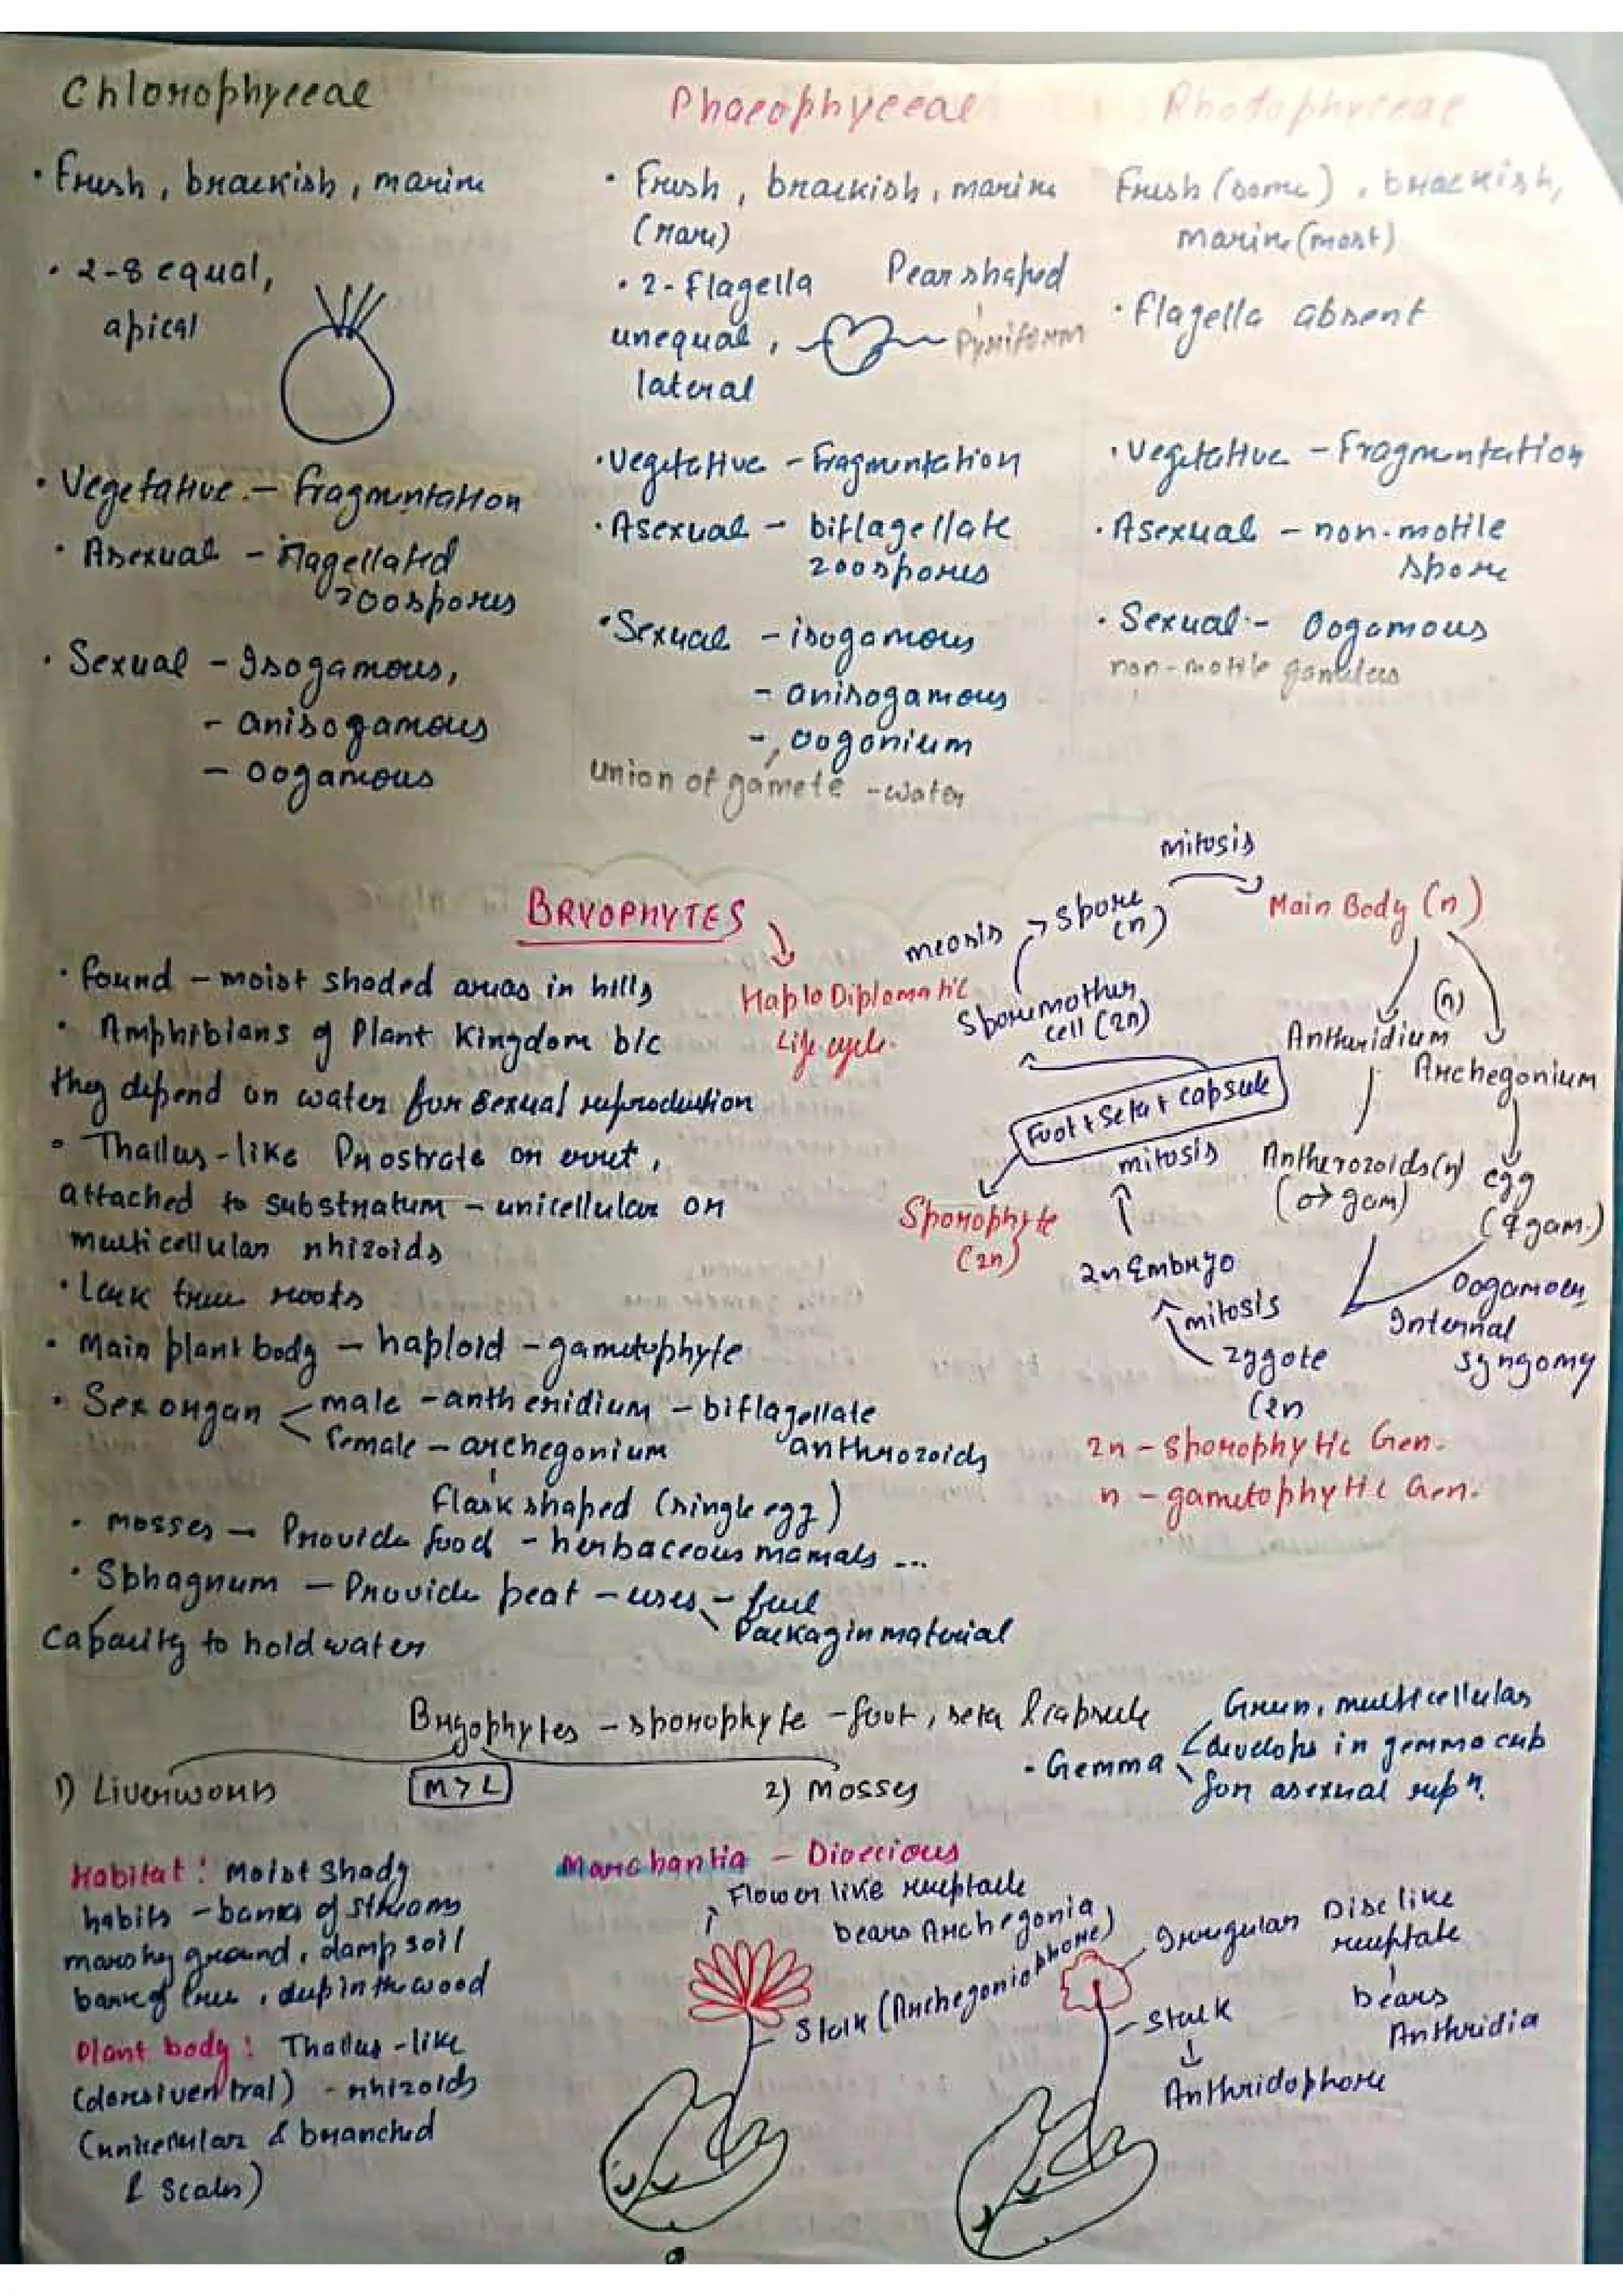 Chlorophyceae
• Fresh, brackish, marine
• 2-8 equal,
apical
• Vegetative - fragmentation
• Asexual - flagellated
zoospores
• Sexual - Isogamous,
- anisogamous
- oogamous
Phaeophyceae
• Fresh, brackish, marine
(rare)
• 2-Flagella
unequal,
lateral
Pear shaped
Pyriform
• Vegetative - fragmentation
• Asexual - biflagellate
zoospores
• Sexual - isogamous
- anisogamous
- oogonium
union of gamete - water
Rhodophyceae
Fresh (some), brackish,
marine (most)
• Flagella absent
• Vegetative - Fragmentation
• Asexual - non-motile
spore
• Sexual - Oogamous
non-motile gametes
BRYOPHYTES
Haplo Diplomatic
Life cycle.
• found - moist shaded areas in hills
• Amphibians of Plant Kingdom b/c
they depend on water for sexual reproduction
• Thallus-like Prostrate or erret,
attached to substratum - unicellular or
multicellular rhizoids
• Lack true roots
• Main plant body - haploid - gametophyte
• Sex organ
male - antheridium - biflagellate
antherozoids
female - archegonium
flask shaped (single egg)
• mosses - Provide food - herbaceous mamals ...
• Sphagnum - Provide peat - uses - fuel
Packagin material
Capacity to hold water
mitosis
meosis
spore
(n)
Main Body (n)
Sporemother
cell (2n)
(n)
Antheridium
Archegonium
Foot + Seta + capsule
mitosis
Antherozoids (n)
(♂ gam)
egg
(♀ gam.)
Sporophyte
(2n)
2n Embryo
mitosis
zygote
(2n
Oogamous
Internal
syngomy
2n - Sporophytic Gen.
n - gametophytic Gen.
Bryophytes - sporophyte - foot, seta & capsule
1) Liverworts
M > L
2) Mosses
• Gemma
Green, multicellular
develops in gemma cub
for asexual repⁿ.
Habitat: Moist shady
habits - banks of streams
marshy ground, damp soil
bark of tree, deep in the wood
Plant body: Thallus-like
(dorsiventral) - rhizoids
(unicellular & branched
& scales)
Marchantia - Dioecious
Flower like receptacle
bears Archegonia
Stalk (Archegoniophore)
Irregular Disc like
receptate
bears
Anthridia
Stalk
Anthridophore